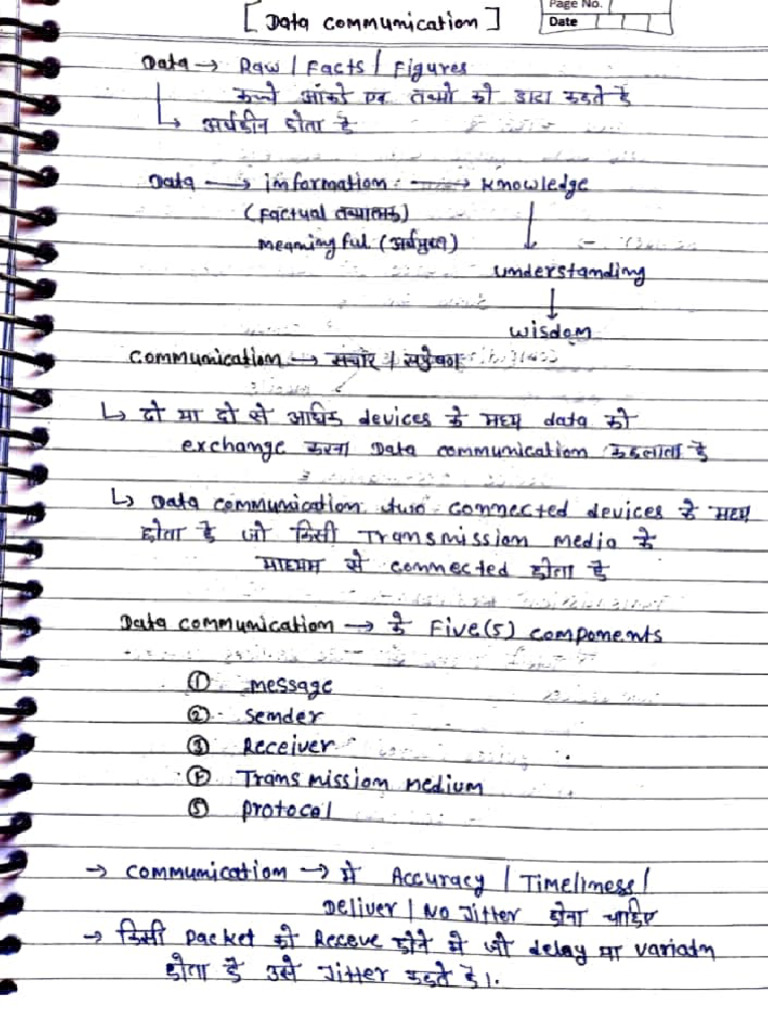 Page No.
Date
[ Data communication ]
Data → Raw / Facts / Figures
कच्चे आंकड़ो एवं तथ्यो को डाटा कहते है
↳ अर्थहीन होता है
Data → information → Knowledge
(Factual तथ्यात्मक)
Meaningful (अर्थयुक्त)
understanding
wisdom
Communication → संचार / संप्रेषण
↳ दो या दो से अधिक devices के मध्य data को
exchange करना Data communication कहलाता है
↳ Data communication two connected devices के मध्य
होता है जो किसी Transmission Media के
माध्यम से connected होता है
Data communication → के Five(5) components
① message
② Sender
③ Receiver
④ Transmission Medium
⑤ protocol
→ Communication → मे Accuracy / Timeliness /
Deliver / No Jitter होना चाहिए
→ किसी Packet को Receve होने मे जो delay या variatn
होता है उसे Jitter कहते है।